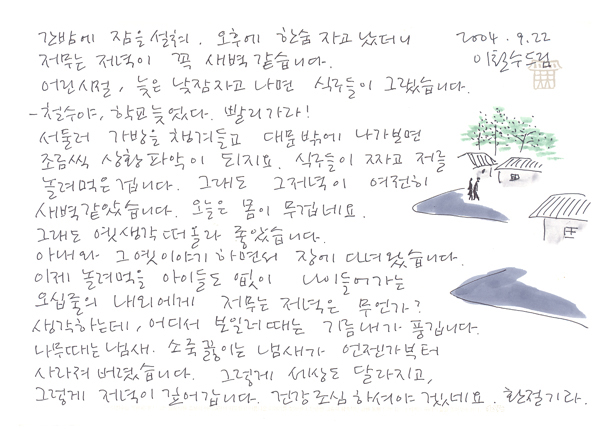 간밤에 잠을 설쳐, 오후에 한숨 자고 났더니
저무는 저녁이 꼭 새벽 같습니다.
어린시절, 늦은 낮잠자고 나면 식구들이 그랬습니다.
- 철수야, 학교 늦었다. 빨리가라!
서둘러 가방을 챙겨들고 대문밖에 나가보면
조금씩 상황파악이 되지요. 식구들이 짜고 저를
놀려먹은 겁니다. 그래도 그저녁이 여전히
새벽 같았습니다. 오늘은 몸이 무겁네요.
그래도 옛생각 떠올라 좋았습니다.
아내와 그 옛이야기 하면서 장에 다녀왔습니다.
이제 놀려먹을 아이들도 없이 나이들어가는
오십줄의 내외에게 저무는 저녁은 무언가?
생각하는데, 어디서 보일러 때는 기름내가 풍깁니다.
나무때는 냄새. 소죽 끓이는 냄새가 언젠가부터
사라져 버렸습니다. 그렇게 세상도 달라지고,
그렇게 저녁이 깊어갑니다. 건강조심 하셔야 겠네요. 환절기라.
2004. 9. 22
이철수드림